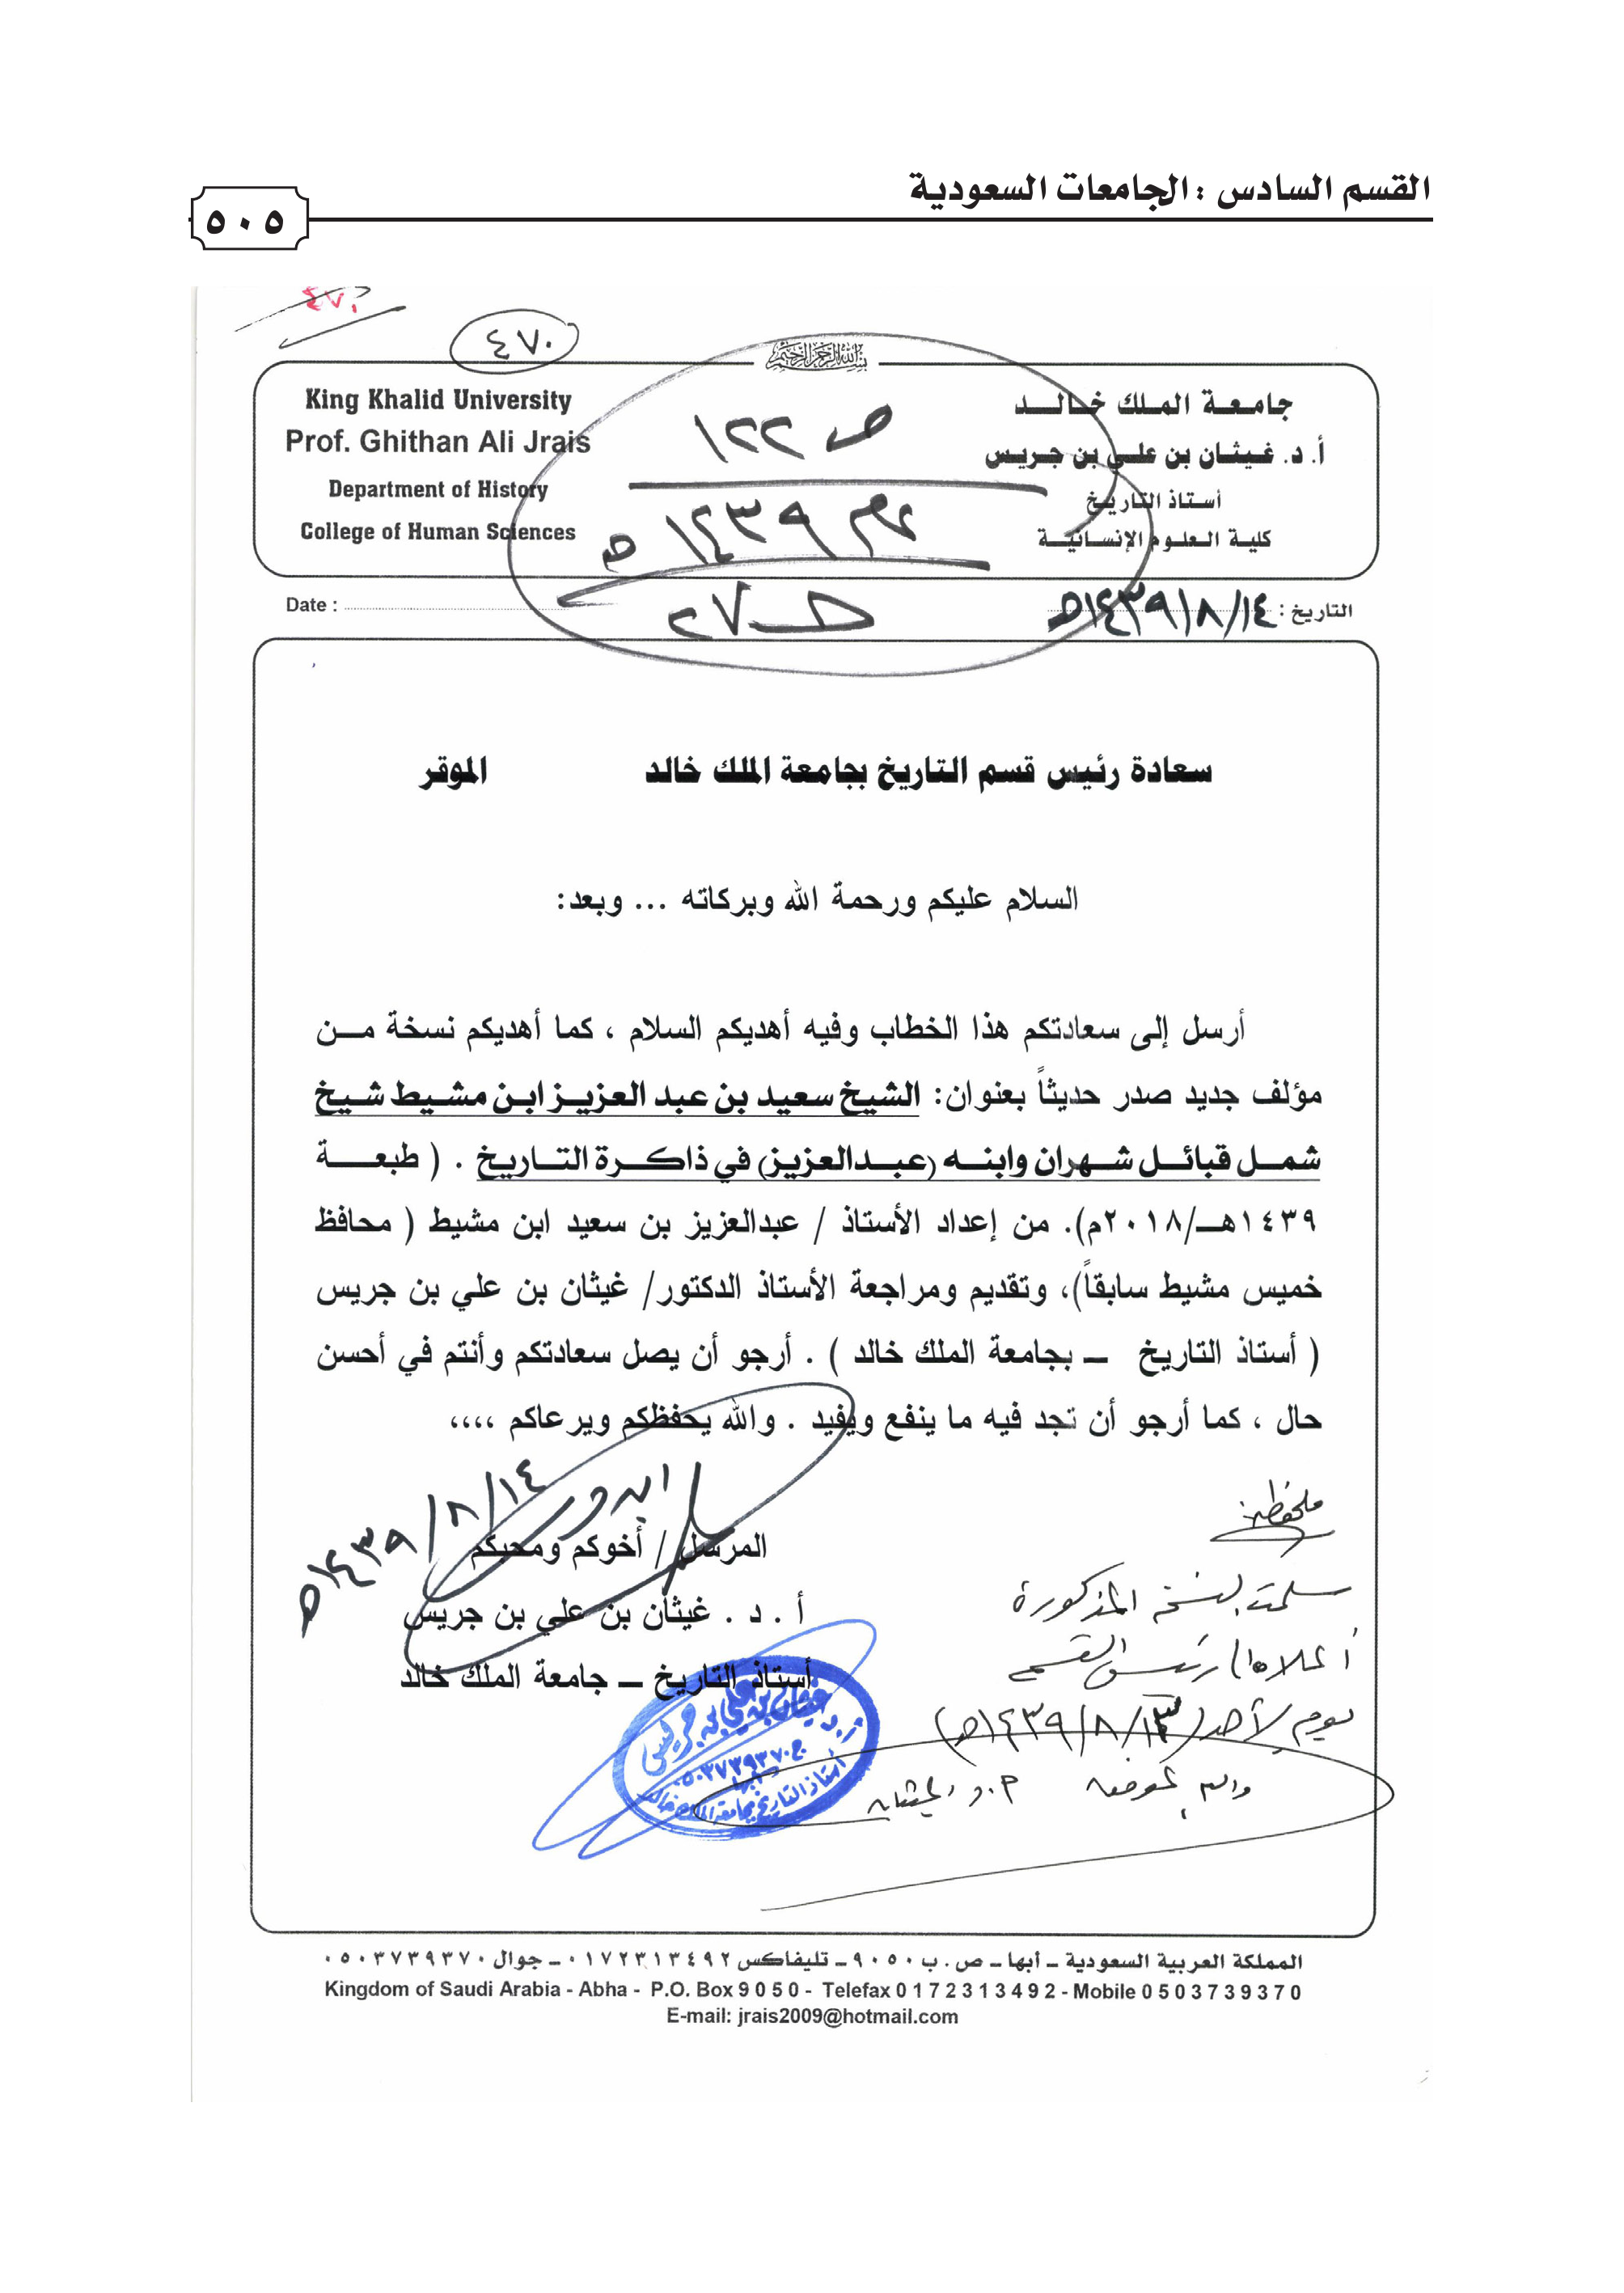 القسم السادس : الجامعات السعودية
٥٠٥
٤٧٠
٤٧٠
بسم الله الرحمن الرحيم
جامعة الملك خالد
أ. د. غيثان بن علي بن جريس
أستاذ التاريخ
كلية العلوم الإنسانية
King Khalid University
Prof. Ghithan Ali Jrais
Department of History
College of Human Sciences
ص ١٢٢
عام ١٤٣٩ هـ
التاريخ : ١٤٣٩/٨/١٤هـ
Date :
سعادة رئيس قسم التاريخ بجامعة الملك خالد الموقر
السلام عليكم ورحمة الله وبركاته ... وبعد:
أرسل إلى سعادتكم هذا الخطاب وفيه أهديكم السلام ، كما أهديكم نسخة من
مؤلف جديد صدر حديثاً بعنوان: الشيخ سعيد بن عبد العزيز ابن مشيط شيخ
شمل قبائل شهران وابنه (عبدالعزيز) في ذاكرة التاريخ . ( طبعة
١٤٣٩هـ/٢٠١٨م). من إعداد الأستاذ / عبدالعزيز بن سعيد ابن مشيط ( محافظ
خميس مشيط سابقاً)، وتقديم ومراجعة الأستاذ الدكتور/ غيثان بن علي بن جريس
( أستاذ التاريخ ــ بجامعة الملك خالد ) . أرجو أن يصل سعادتكم وأنتم في أحسن
حال ، كما أرجو أن تجد فيه ما ينفع ويفيد . والله يحفظكم ويرعاكم ،،،،
١٤٣٩/٨/١٤هـ
المرسل / أخوكم ومحبكم
أ . د . غيثان بن علي بن جريس
أستاذ التاريخ ــ جامعة الملك خالد
ملحوظة
سلمت النسخة المذكورة
أعلاه / رئيس القسم
يوم الأحد (١٤٣٩/٨/١٣هـ)
أ.د غيثان بن علي بن جريس
ج ٠٥٠٣٧٣٩٣٧٠
أبها
أستاذ التاريخ بجامعة الملك خالد
المملكة العربية السعودية ــ أبها ــ ص . ب ٩٠٥٠ ــ تليفاكس ٠١٧٢٣١٣٤٩٢ ــ جوال ٠٥٠٣٧٣٩٣٧٠
Kingdom of Saudi Arabia - Abha - P.O. Box 9 0 5 0 - Telefax 0 1 7 2 3 1 3 4 9 2 - Mobile 0 5 0 3 7 3 9 3 7 0
E-mail: jrais2009@hotmail.com